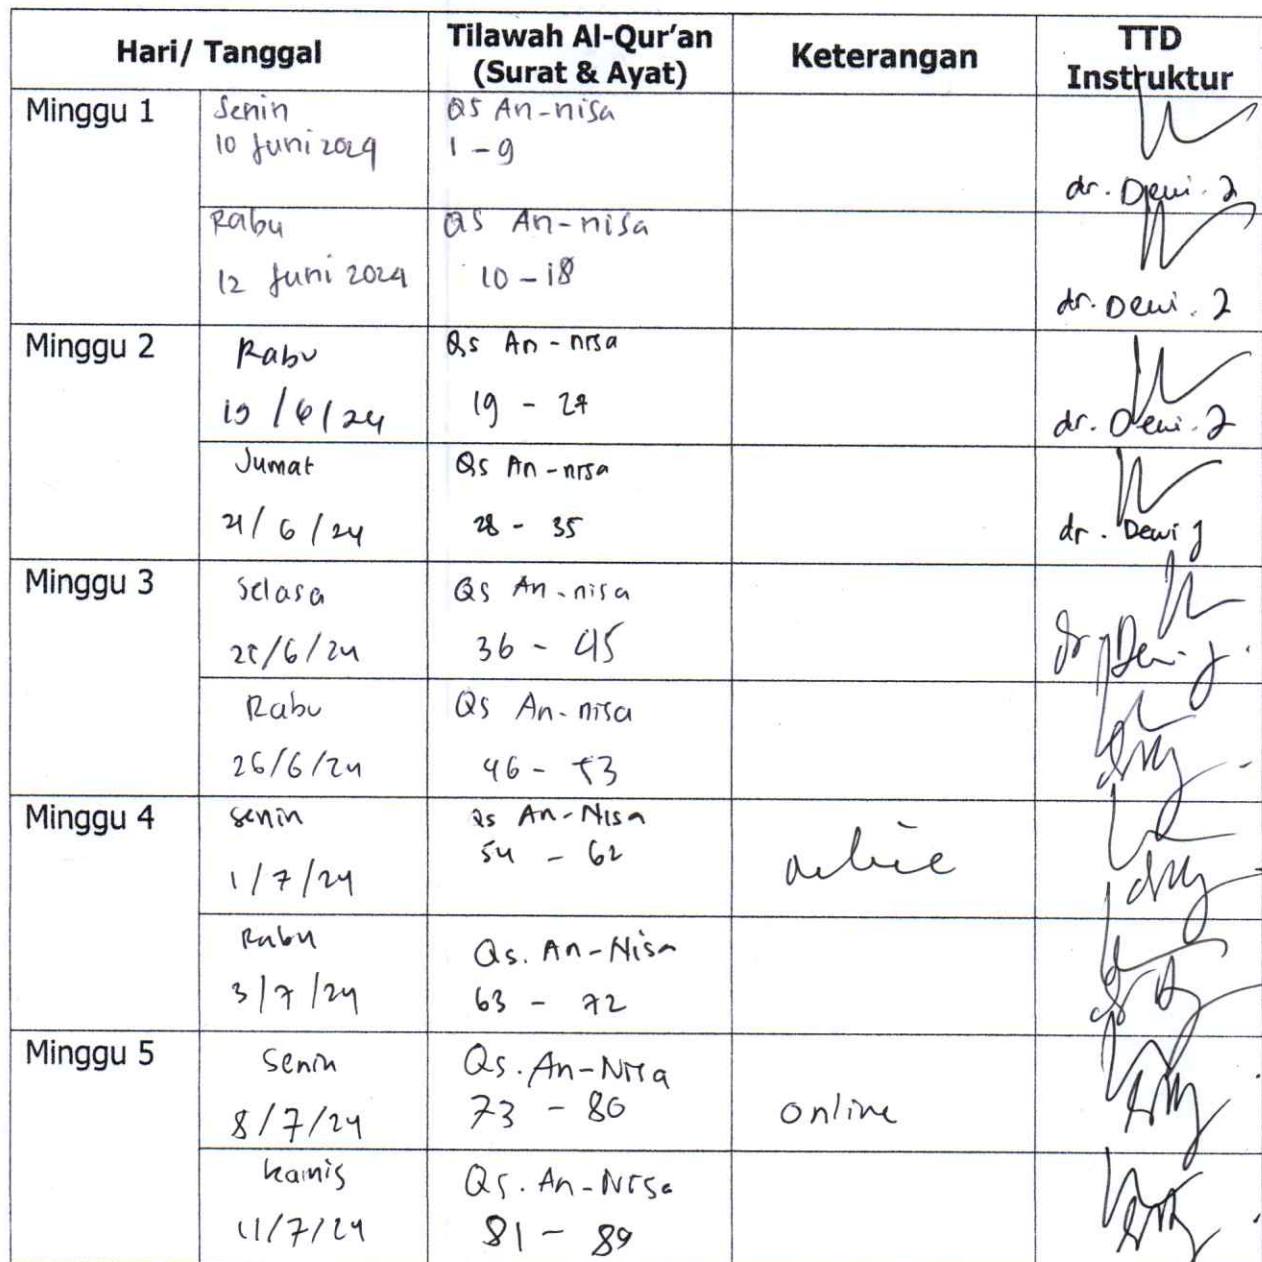 Hari/ Tanggal
Tilawah Al-Qur'an
(Surat & Ayat)
Keterangan
TTD
Instruktur
Minggu 1
Senin
10 Juni 2024
QS An-nisa
1 - 9
dr. Dewi. J
Rabu
12 Juni 2024
QS An-nisa
10 - 18
dr. Dewi. J
Minggu 2
Rabu
19/6/24
Qs An-nisa
19 - 27
dr. Dewi. J
Jumat
21/6/24
Qs An-nisa
28 - 35
dr. Dewi J
Minggu 3
Selasa
25/6/24
Qs An-nisa
36 - 45
dr Dewi J.
Rabu
26/6/24
Qs An-nisa
46 - 53
Minggu 4
senin
1/7/24
Qs An-Nisa
54 - 62
online
Rabu
3/7/24
Qs. An-Nisa
63 - 72
Minggu 5
Senin
8/7/24
Qs. An-Nisa
73 - 80
online
kamis
11/7/24
Qs. An-Nisa
81 - 89